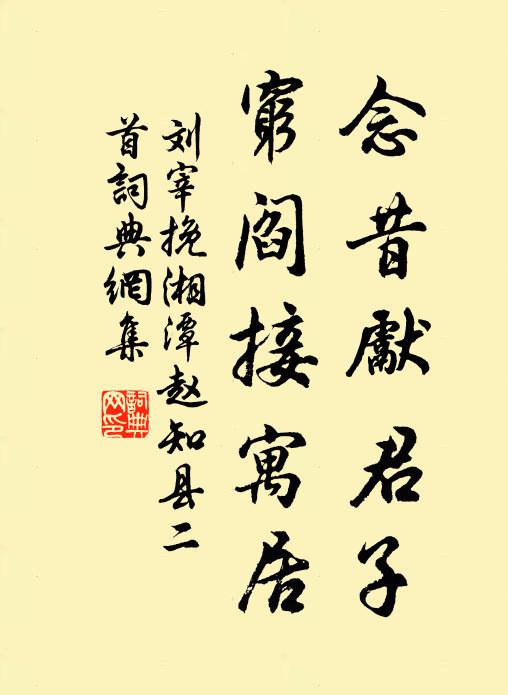 念昔獻君子
窮閻接寓居
刘宰挽湘潭赵知县二
首詞典網集
詞典
网印